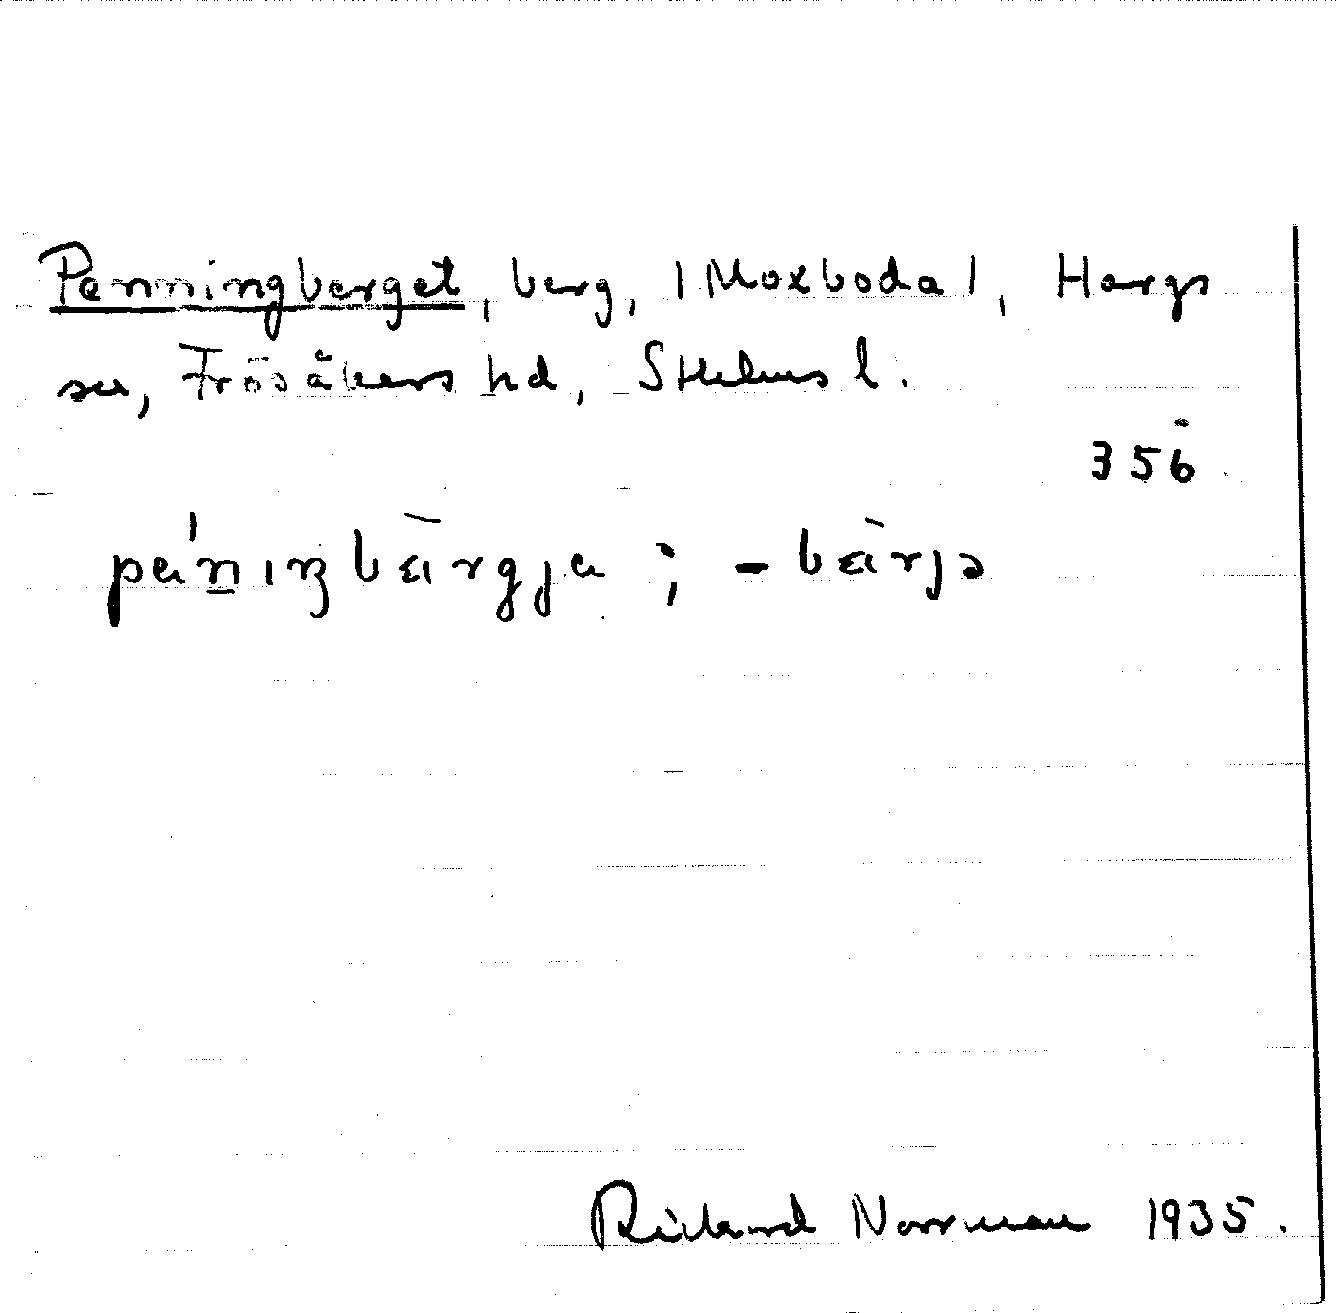 Penningberget, berg, | Moxboda |, Hargs
sn, Frösåkers hd, Sthlms l.
356
pen̲ıŋbærgja ; – bærjə
Rickard Norrman 1935.